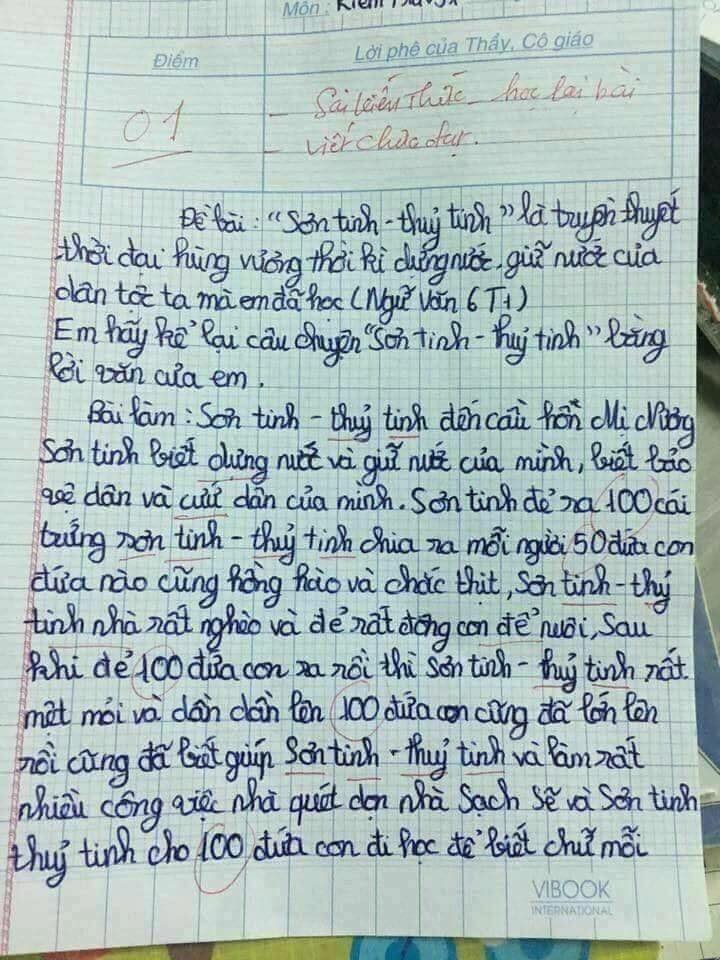 Môn :
Điểm
Lời phê của Thầy, Cô giáo
01
- Sai kiến thức - học lại bài
- viết chưa đạt.
Đề bài : "Sơn tinh - thuỷ tinh" là truyền thuyết
thời đại hùng vương thời kì dựng nước, giữ nước của
dân tộc ta mà em đã học (Ngữ văn 6 T1)
Em hãy kể lại câu chuyện "Sơn tinh - thuỷ tinh" bằng
lời văn của em.
Bài làm : Sơn tinh - thuỷ tinh đến cầu hôn Mị Nương
Sơn tinh biết dựng nước và giữ nước của mình, biết bảo
vệ dân và cứu dân của mình. Sơn tinh đẻ ra 100 cái
trứng sơn tinh - thuỷ tinh chia ra mỗi người 50 đứa con
đứa nào cũng hồng hào và chắc thịt, Sơn tinh - thuỷ
tinh nhà rất nghèo và đẻ rất đông con để nuôi, Sau
khi đẻ 100 đứa con ra rồi thì Sơn tinh - thuỷ tinh rất
mệt mỏi và dần dần lên 100 đứa con cũng đã lớn lên
rồi cũng đã biết giúp Sơn tinh - thuỷ tinh và làm rất
nhiều công việc nhà quét dọn nhà sạch sẽ và Sơn tinh
thuỷ tinh cho 100 đứa con đi học để biết chữ mỗi
VIBOOK
INTERNATIONAL